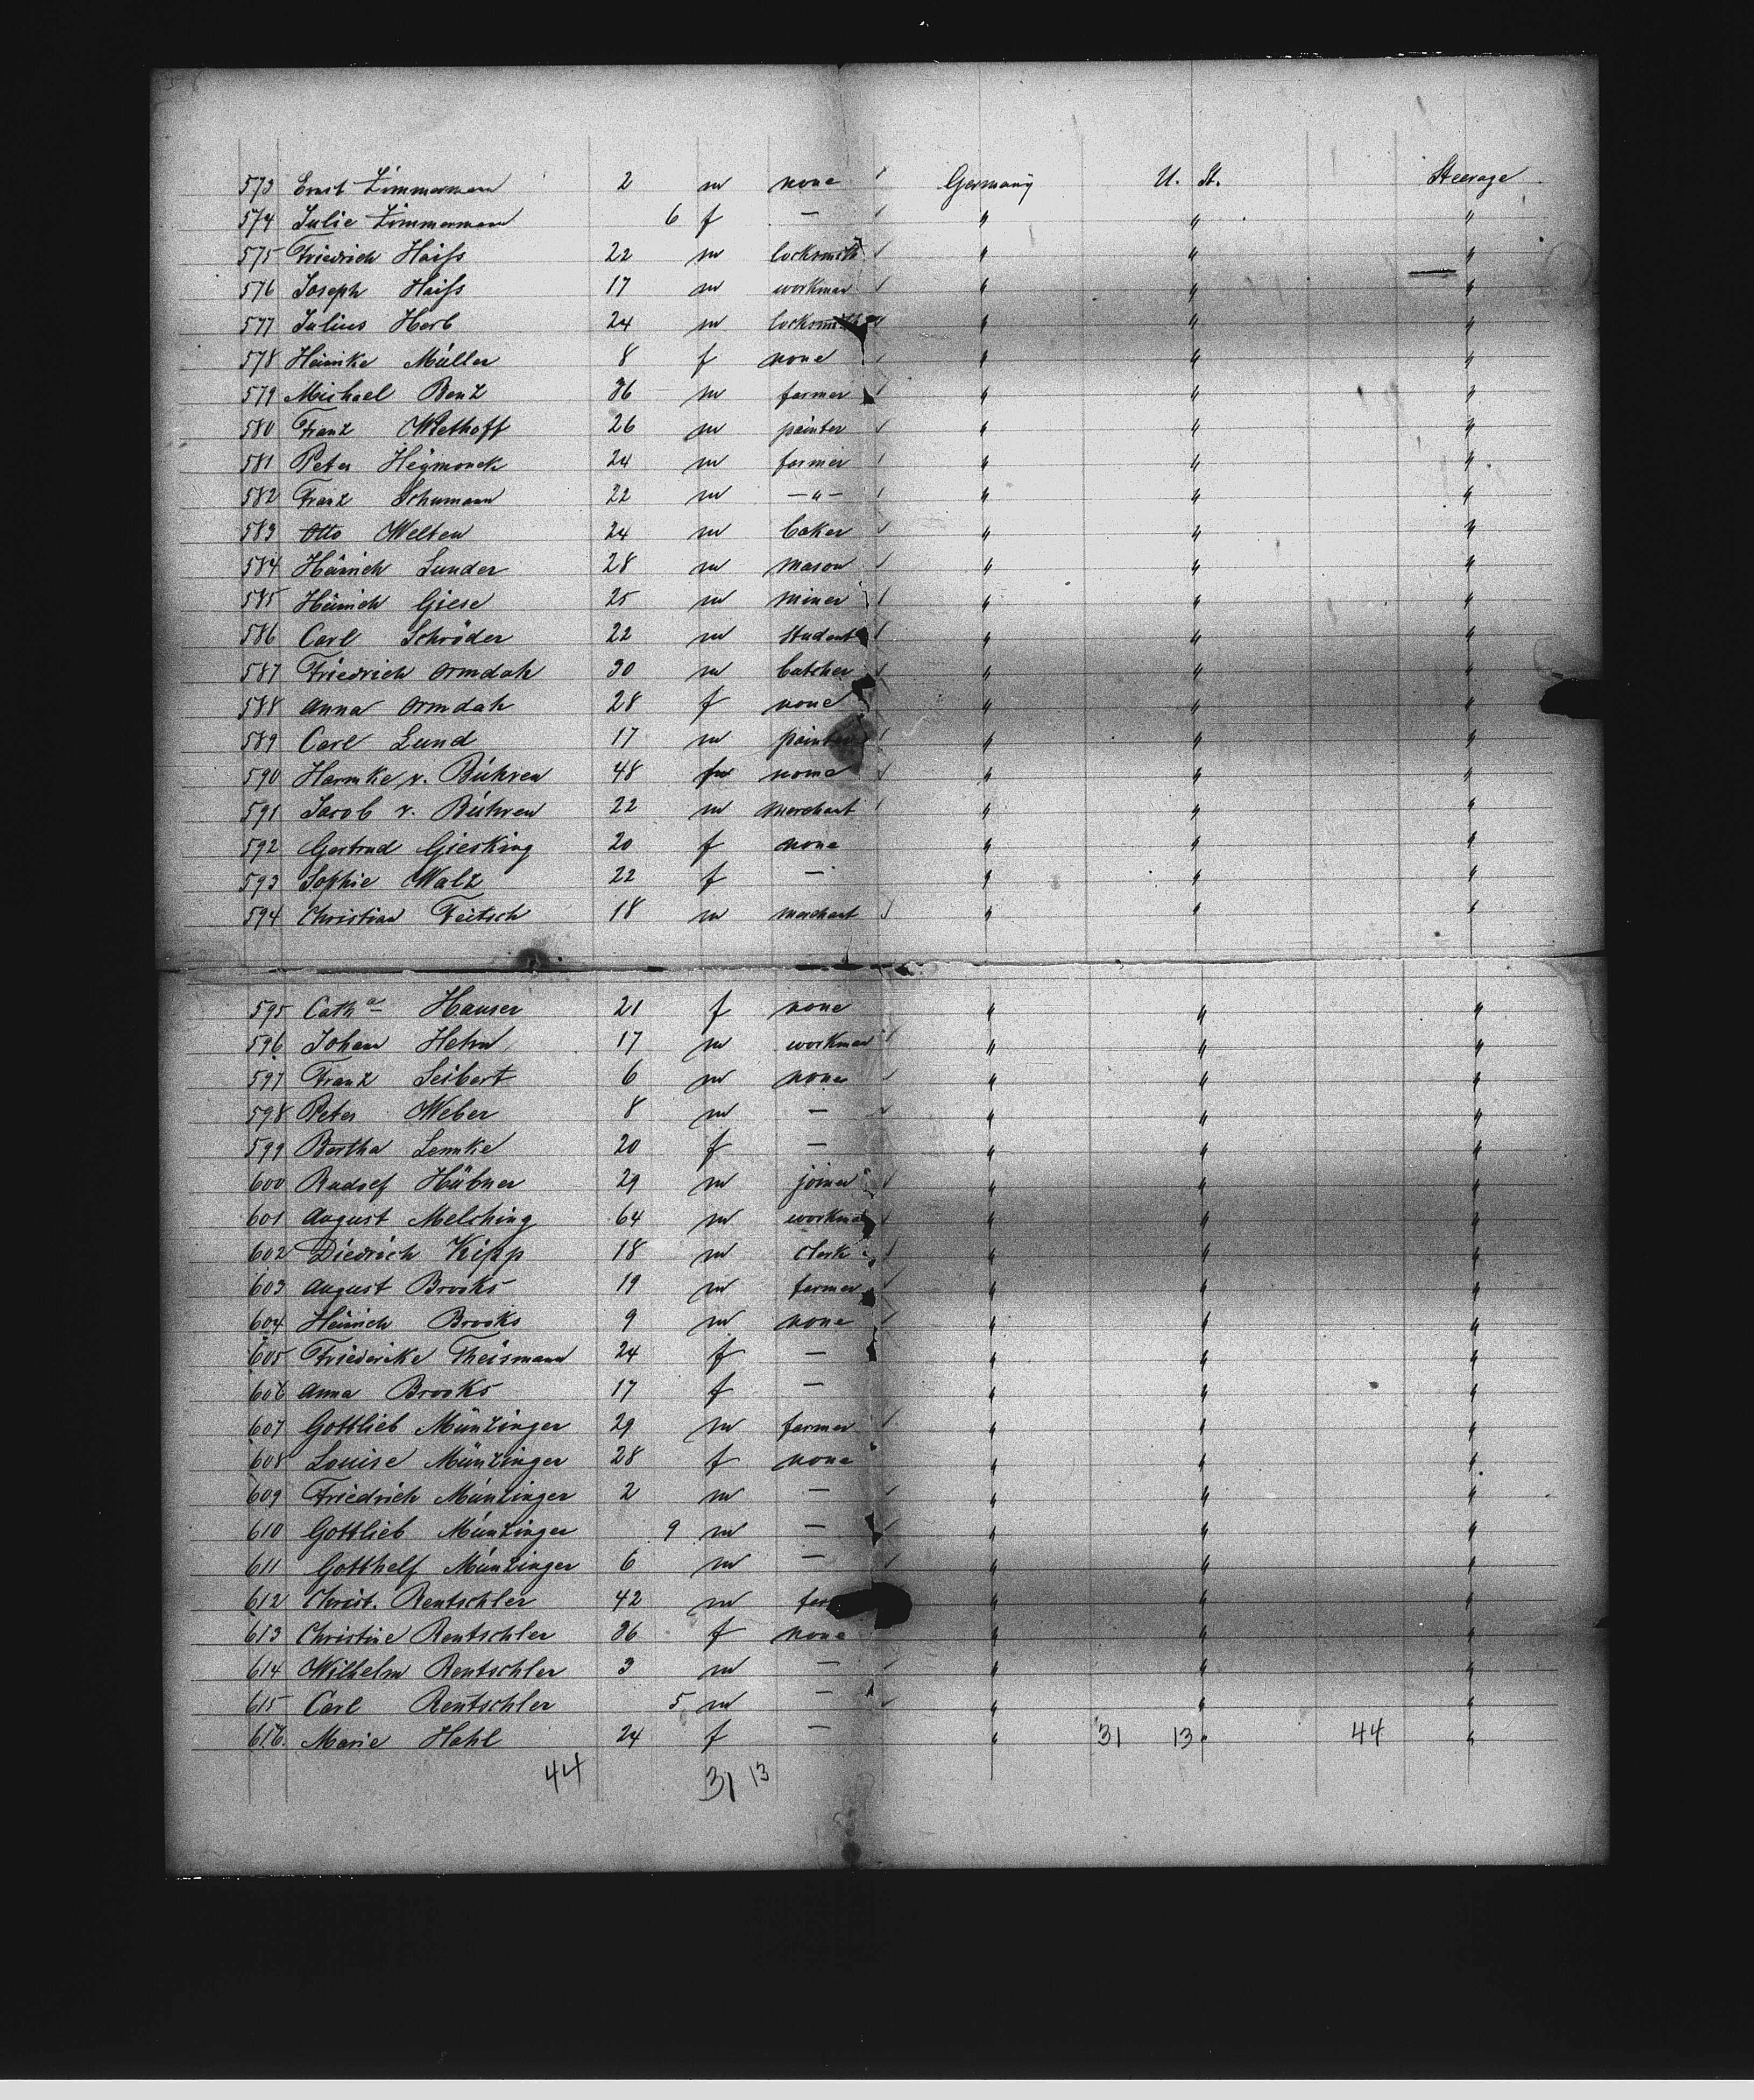 573 Ernst Zimmermann 2 m none Germany U. St. Steerage
574 Julie Zimmermann 6 f — " " "
575 Friedrich Haifs 22 m locksmith " " "
576 Joseph Haifs 17 m workman " " "
577 Julius Herb 24 m locksmith " " "
578 Heinrike Müller 8 f none " " "
579 Michael Benz 36 m farmer " " "
580 Franz Wiethoff 26 m painter " " "
581 Peter 24 m farmer " " "
582 Franz Schumann 22 m —"— " " "
583 Otto Welten 24 m baker " " "
584 Heinrich Sunder 28 m mason " " "
585 Heinrich Giese 25 m miner " " "
586 Carl Schröder 22 m student " " "
587 Friedrich Ormdah 30 m butcher " " "
588 Anna Ormdah 28 f none " " "
589 Carl Lund 17 m painter " " "
590 Harmke v. Bühren 48 f none " " "
591 Jacob v. Bühren 22 m merchant " " "
592 Gertrud Giesking 20 f none " " "
593 Sophie Walz 22 f — " " "
594 Christian Feitsch 18 m merchant " " "
595 Cath a Hauser 21 f none " " "
596 Johann Hehn 17 m workman " " "
597 Franz Seibert 6 m none " " "
598 Peter Weber 8 m — " " "
599 Bertha Lemke 20 f — " " "
600 Rudolf Hübner 29 m joiner " " "
601 August Melching 64 m workman " " "
602 Diedrich Kipp 18 m clerk " " "
603 August Brooks 19 m farmer " " "
604 Heinrich Brooks 9 m none " " "
605 Friederike Theismann 24 f — " " "
606 Anna Brooks 17 f — " " "
607 Gottlieb Münzinger 29 m farmer " " "
608 Louise Münzinger 28 f none " " "
609 Friedrich Münzinger 2 m — " " "
610 Gottlieb Münzinger 9 m — " " "
611 Gotthelf Münzinger 6 m — " " "
612 Christ. Rentschler 42 m far " " "
613 Christine Rentschler 36 f none " " "
614 Wilhelm Rentschler 3 m — " " "
615 Carl Rentschler 5 m — " " "
616. Marie Hahl 24 f — " 31 13 " 44 "
44 31 13